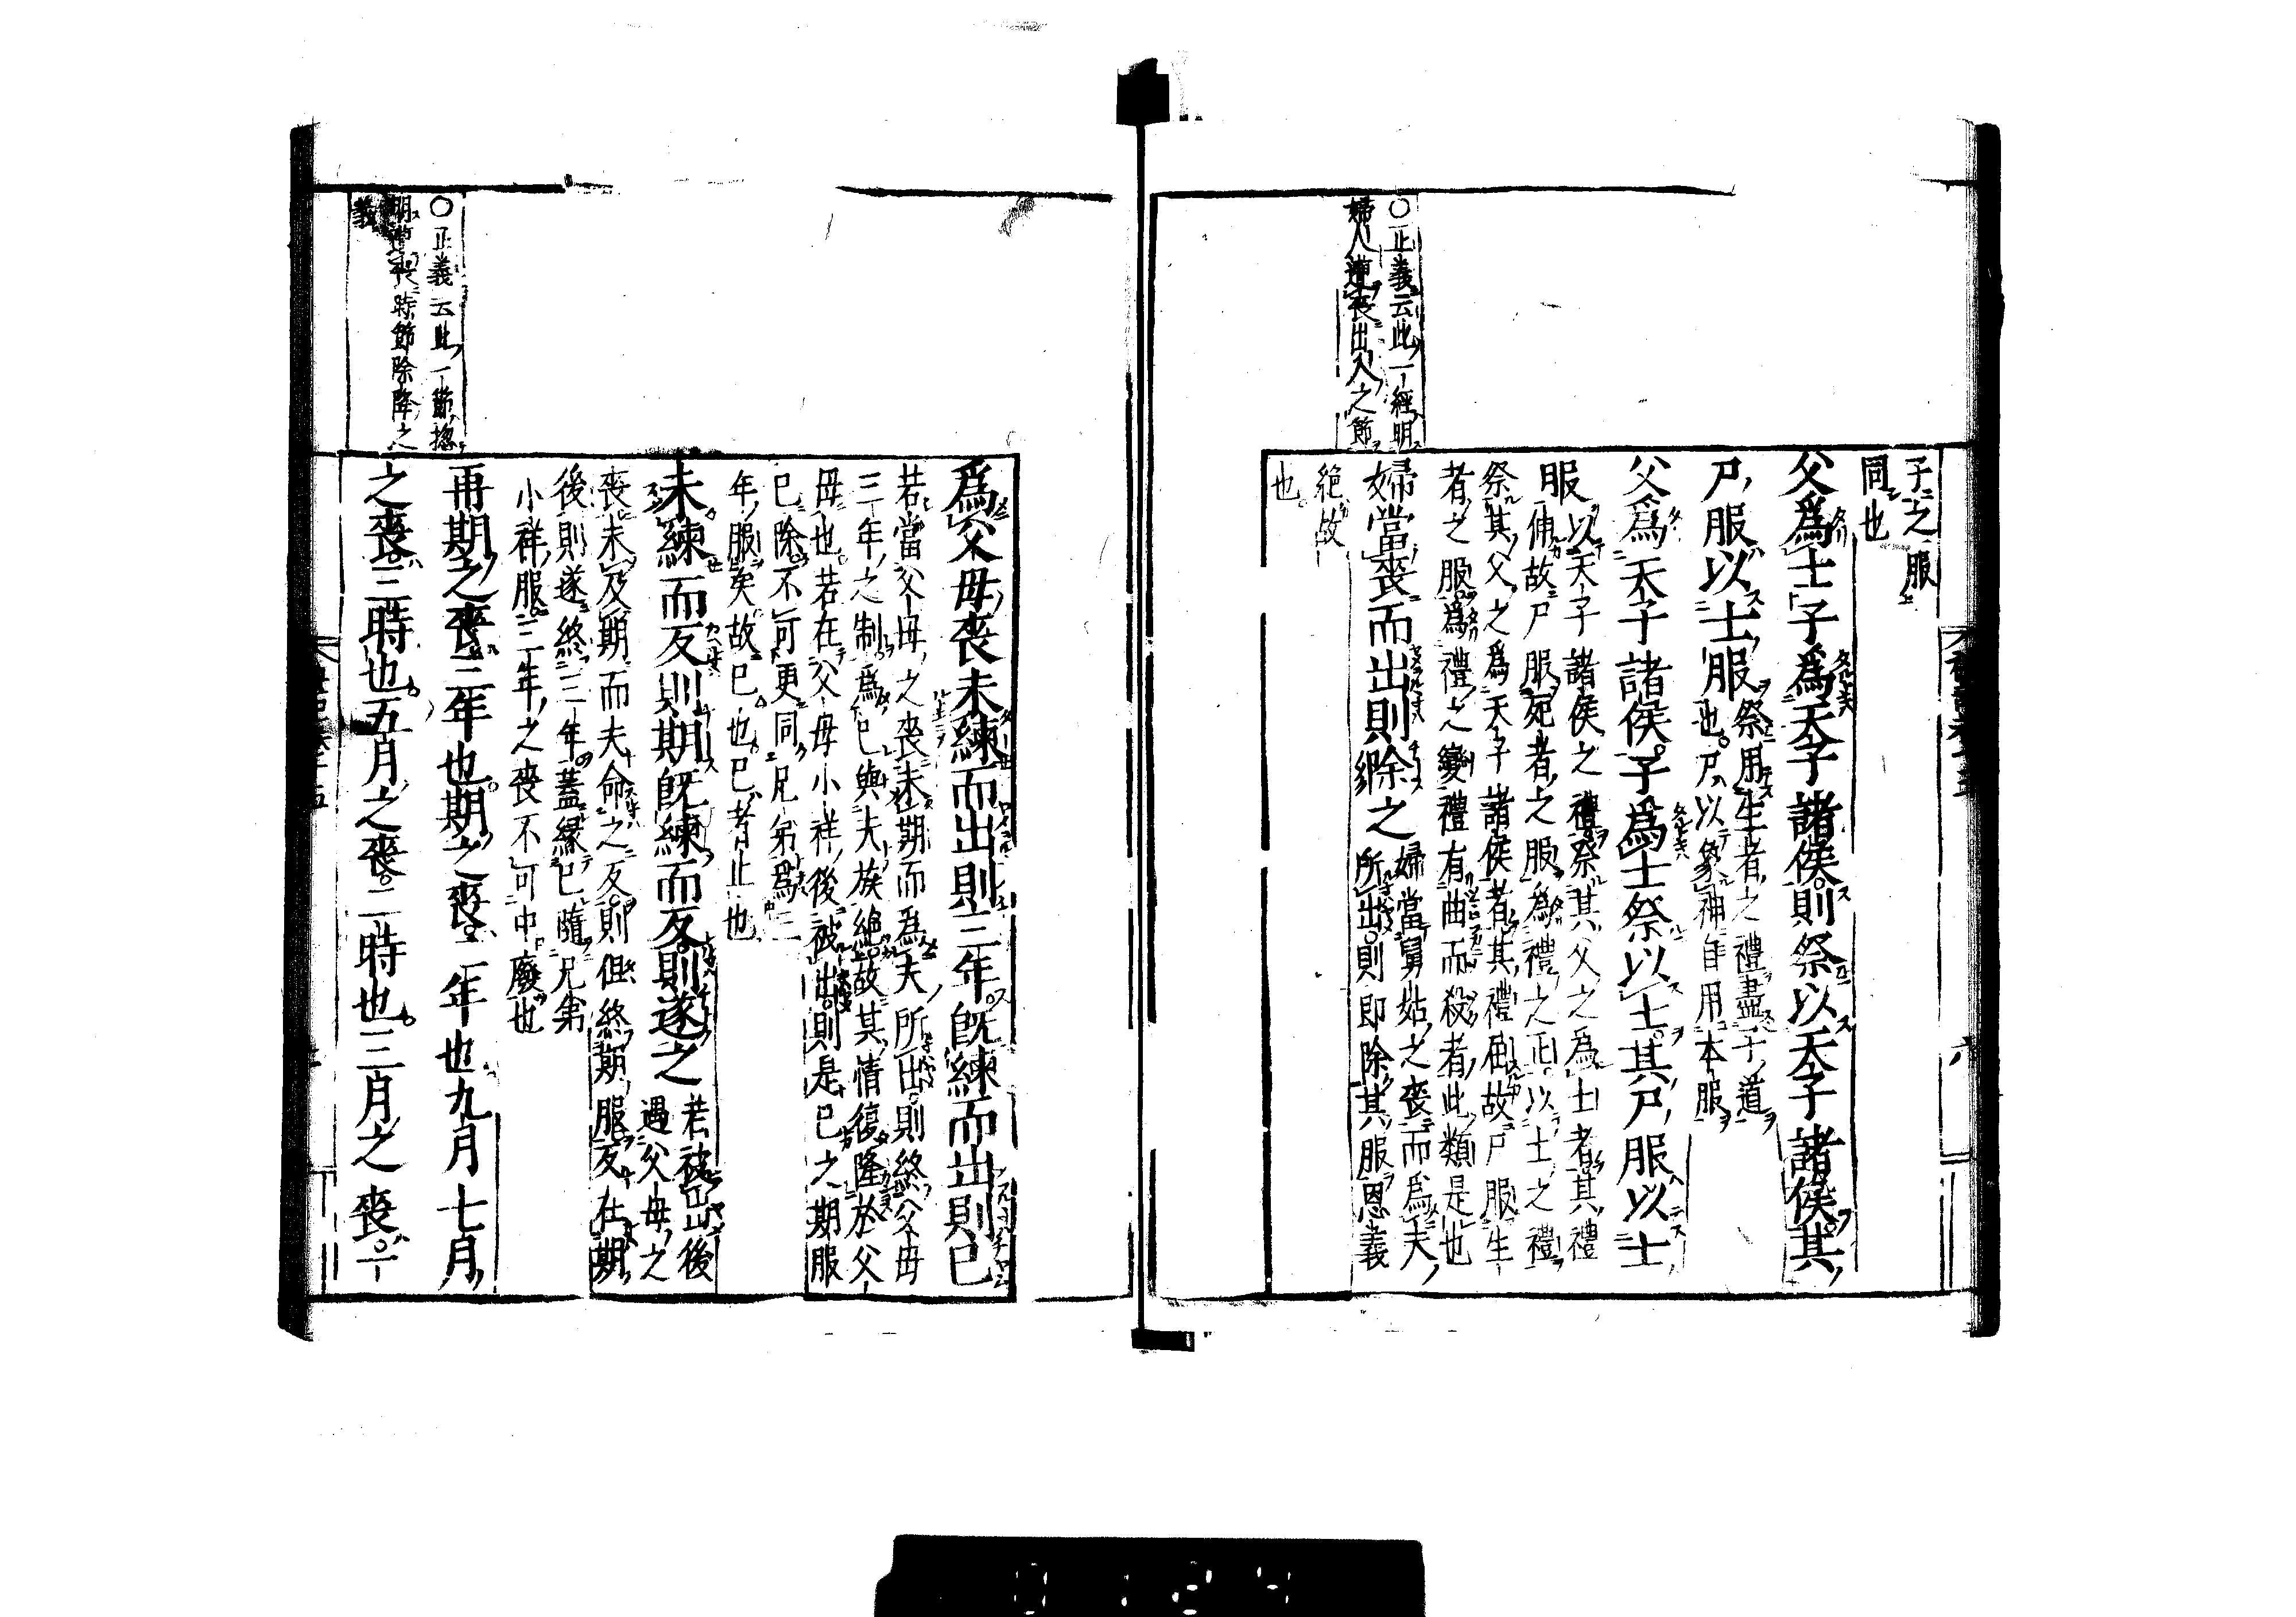 子之服
同也
父爲士子爲天子諸侯則祭以天子諸侯其
尸服以士服
祭用生者之禮盡子道
也尸以象神自用本服
父爲天子諸侯子爲士祭以士其尸服以士
服
以天子諸侯之禮祭其父之爲士者其禮
伸故尸服死者之服爲禮之正以士之禮
祭其父之爲天子諸侯者其禮屈故尸服生
者之服爲禮之變禮有曲而殺者此類是也
〇正義云此一經明
婦人遭喪出入之節
婦當喪而出則除之
婦當舅姑之喪而爲夫
所出則即除其服恩義
絕故
也
爲父母喪未練而出則三年旣練而出則已
若當父母之喪未期而爲夫所出則終父母
三年之制爲已與夫族絕故其情復隆於父
母也若在父母小祥後被出則是已之期服
已除不可更同兄弟爲三
年服矣故已也已者止也
未練而反則期旣練而反則遂之
若被出後
過父母之
喪未及期而夫命之反則但終期服反在期
後則遂終三年蓋緣已隨兄弟
小祥服三年之喪不可中廢也
〇正義云此一節揔
明遭喪時節除降之
義
再期之喪三年也期之喪二年也九月七月
之喪三時也五月之喪二時也三月之喪一